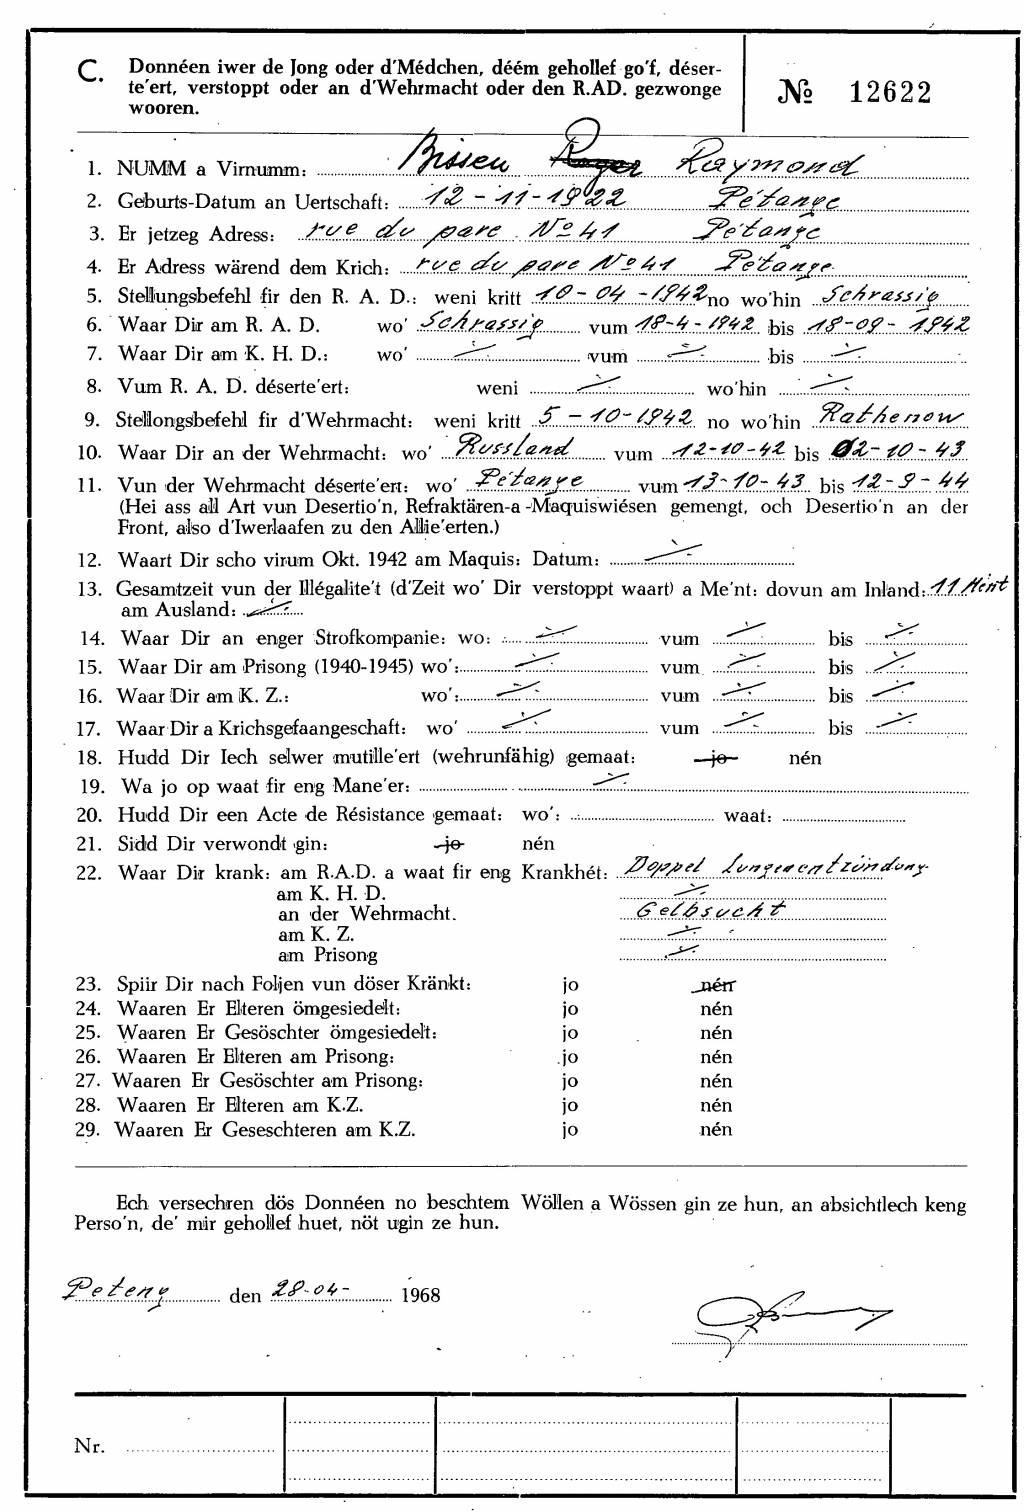 C. Donnéen iwer de Jong oder d'Médchen, déém gehollef go'f, déser-
te'ert, verstoppt oder an d'Wehrmacht oder den R.AD. gezwonge
wooren.
№ 12622
1. NUMM a Virnumm: Bissen Roger Raymond
2. Geburts-Datum an Uertschaft: 12-11-1922 Pétange
3. Er jetzeg Adress: rue du parc No 41 Pétange
4. Er Adress wärend dem Krich: rue du parc No 41 Pétange
5. Stellungsbefehl fir den R. A. D.: weni kritt 10-04-1942 no wo'hin Schrassig
6. Waar Dir am R. A. D. wo' Schrassig vum 18-4-1942 bis 18-09-1942
7. Waar Dir am K. H. D.: wo' ./. vum ./. bis ./.
8. Vum R. A. D. déserte'ert: weni ./. wo'hin ./.
9. Stellongsbefehl fir d'Wehrmacht: weni kritt 5-10-1942 no wo'hin Rathenow
10. Waar Dir an der Wehrmacht: wo' Russland vum 12-10-42 bis 02-10-43
11. Vun der Wehrmacht déserte'ert: wo' Pétange vum 13-10-43 bis 12-9-44
(Hei ass all Art vun Desertio'n, Refraktären-a-Maquiswiésen gemengt, och Desertio'n an der
Front, also d'Iwerlaafen zu den Allie'erten.)
12. Waart Dir scho virum Okt. 1942 am Maquis: Datum: ./.
13. Gesamtzeit vun der Illégalite't (d'Zeit wo' Dir verstoppt waart) a Me'nt: dovun am Inland: 11 Mēnt
am Ausland: ./.
14. Waar Dir an enger Strofkompanie: wo: ./. vum ./. bis ./.
15. Waar Dir am Prisong (1940-1945) wo': ./. vum ./. bis ./.
16. Waar Dir am K. Z.: wo': ./. vum ./. bis ./.
17. Waar Dir a Krichsgefaangeschaft: wo' ./. vum ./. bis ./.
18. Hudd Dir Iech selwer mutille'ert (wehrunfähig) gemaat: jo nén
19. Wa jo op waat fir eng Mane'er: ./.
20. Hudd Dir een Acte de Résistance gemaat: wo': waat:
21. Sidd Dir verwondt gin: jo nén
22. Waar Dir krank: am R.A.D. a waat fir eng Krankhét: Doppel Lungenentzündung
am K. H. D. ./.
an der Wehrmacht. Gelbsucht
am K. Z. ./.
am Prisong ./.
23. Spiir Dir nach Foljen vun döser Kränkt: jo nén
24. Waaren Er Elteren ömgesiedelt: jo nén
25. Waaren Er Gesöschter ömgesiedelt: jo nén
26. Waaren Er Elteren am Prisong: jo nén
27. Waaren Er Gesöschter am Prisong: jo nén
28. Waaren Er Elteren am K.Z. jo nén
29. Waaren Er Geseschteren am K.Z. jo nén
Ech versechren dös Donnéen no beschtem Wöllen a Wössen gin ze hun, an absichtlech keng
Perso'n, de' mir gehollef huet, nöt ugin ze hun.
Peteng den 28-04- 1968
Nr.